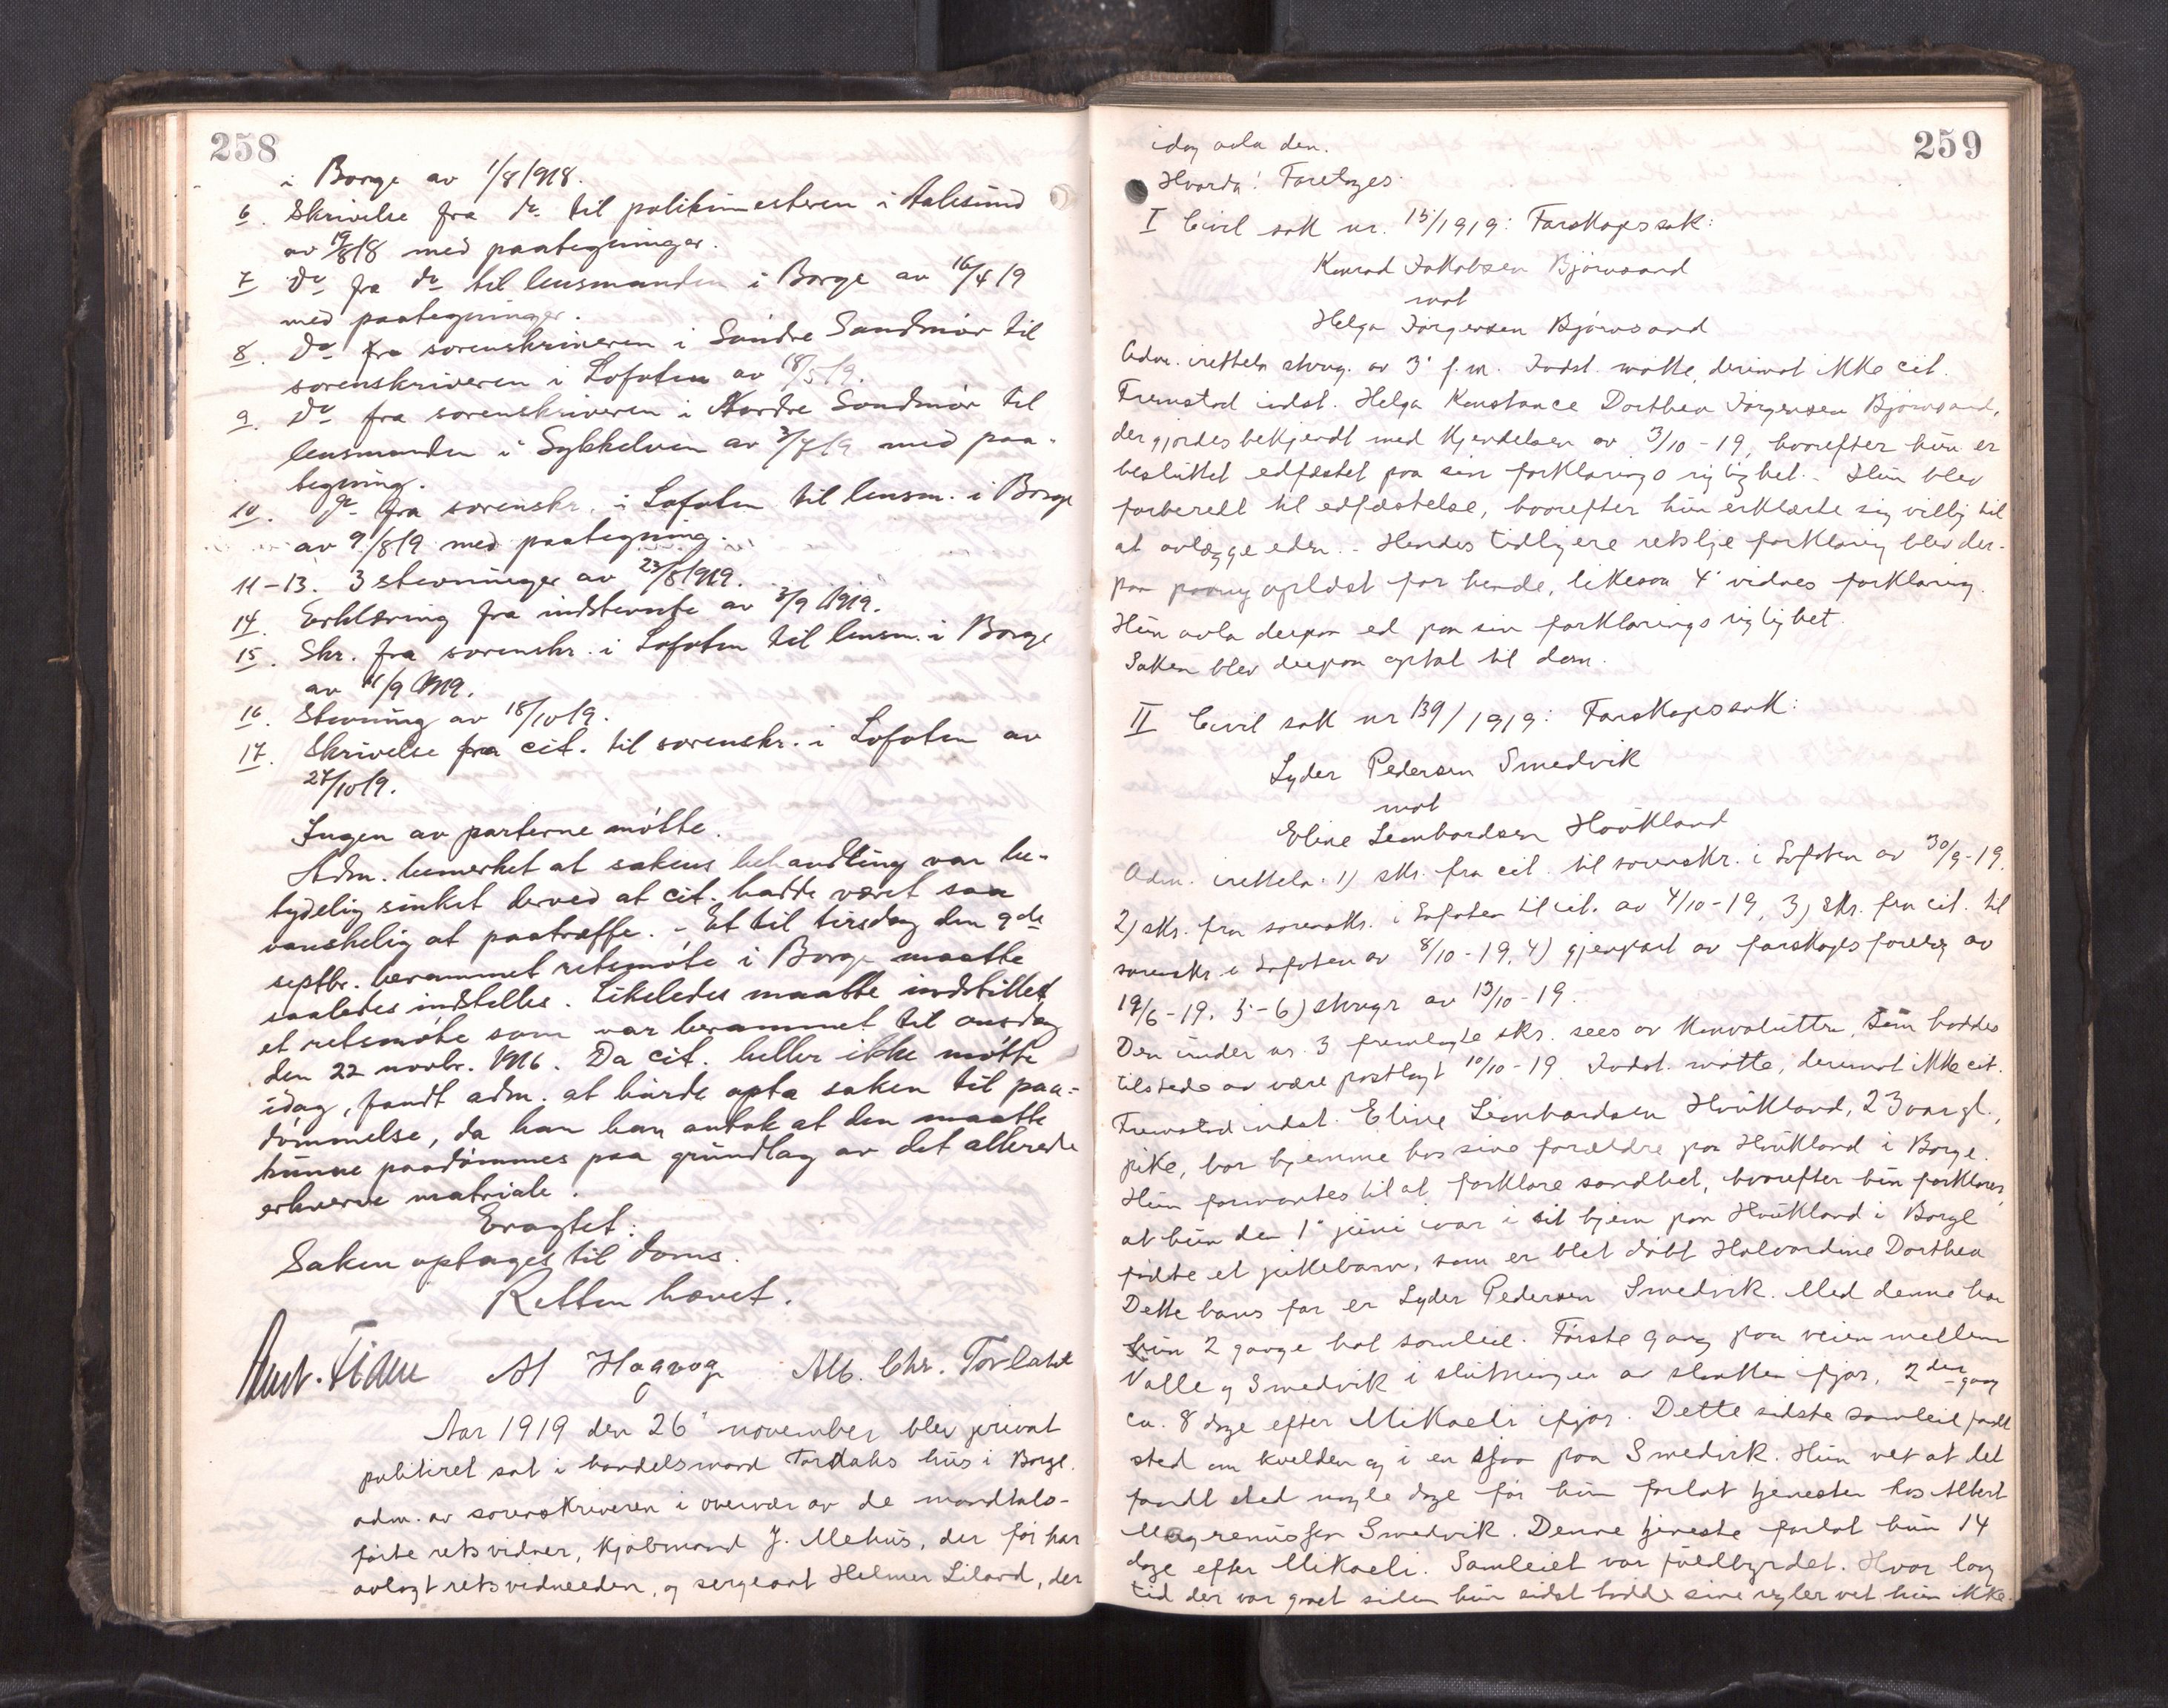 258
i Borge av 1/8 1918.
6. Skrivelse fra do til politimesteren i Aalesund
av 19/8 18 med paategninger.
7 do fra do til lensmanden i Borge av 16/4 19
med paategninger.
8. do fra sorenskriveren i Søndre Søndmør til
sorenskriveren i Lofoten av 18/5 19.
9. do fra sorenskriveren i Nordre Søndmør til
lensmanden i Sykkelven av 3/7 19 med paa-
tegning.
10. do fra sorenskr. i Lofoten til lensm. i Borge
av 9/8 19 med paategning.
11-13. 3 stevninger av 23/8 1919.
14. Erklæring fra indstevnte av 3/9 1919.
15. Skr. fra sorenskr. i Lofoten til lensm. i Borge
av /9 1919.
16. Stevning av 18/10 19.
17. Skrivelse fra cit. til sorenskr. i Lofoten av
27/10 19.
Ingen av parterne møtte.
Adm. bemerket at sakens behandling var be-
tydelig sinket derved at cit. hadde været saa
vanskelig at paatræffe. - Et til tirsdag den 9de
septbr. berammet retsmøte i Borge maatte
saaledes indstilles. Likeledes maatte indstilles
et retsmøte som var berammet til onsdag
den 22 novbr. 1916. Da cit. heller ikke møtte
idag, fandt adm. at burde opta saken til paa-
dømmelse, da han han antok at den maatte
kunne paadømmes paa grundlag av det allerede
erhverve matriale.
Eragtet:
Saken optages til doms.
Retten hævet.
Al Hagvag Alb. Chr. Torlaht
Aar 1919 den 26' november blev privat
politiret sat i handelsmand Tordahs hus i Borge.
adm. av sorenskriveren i overvær av de mandtals-
førte retsvidner, kjøbmand J. Mehus, der før har
avlagt retsvidneeden, og sergeant Helmer Liland, der
259
idag avla den.
Hvorda! Foretoges
I Civil sak nr. 15/1919: Farskapssak:
Konrad Jakobsen Bjørnsand
mot
Helga Jørgensen Bjørnsand
Adm. irettela stevng. av 3' f.m. Indst. møtte, derimot ikke cit.
Fremstod indst. Helga Konstance Dorthea Jørgensen Bjørnsand,
der gjordes bekjendt med kjendelsen av 3/10-19, hvorefter hun er
besluttet edfæstet paa sin forklarings rigtighet. - Hun blev
forberedt til edfæstelse, hvorefter hun erklærte sig villig til
at avlægge eden. - Hendes tidligere retslige forklaring blev der-
paa paany oplæst for hende, likesaa 4' vidnes forklaring.
Hun avla derpaa ed paa sin forklarings rigtighet.
Saken blev derpaa optat til dom.
II Civil sak nr 139/1919: Farskapssak:
Lyder Pedersen Smedvik
mot
Eline Leonhardsen Haukland
Adm. irettela: 1) skr. fra cit. til sorenskr. i Lofoten av 30/9-19.
2) skr. fra sorenskr. i Lofoten til cit. av 4/10-19, 3) skr. fra cit. til
sorenskr. i Lofoten av 8/10-19, 4) gjenpart av farskapsforelæg av
19/6-19. 5-6) stevngr av 13/10-19.
Den under nr. 3 fremlagte skr. sees av konvolutten, som haddes
tilstede av være postlagt 10/10-19. Indst. møtte, derimot ikke cit.
Fremstod indst. Eline Leonhardsen Haukland, 23 aar gl.,
pike, bor hjemme hos sine forældre paa Haukland i Borge.
Hun formantes til at forklare sandhet, hvorefter hun forklarer,
at hun den 1' juni iaar i sit hjem paa Haukland i Borge
fødte et pikebarn, som er blet døbt Halvardine Dorthea
Dette barns far er Lyder Pedersen Smedvik. Med denne har
hun 2 gange hat samleie. Første gang paa veien mellem
Valle og Smedvik i slutningen av slaatten ifjor, 2den gang
ca. 8 dage efter Mikaeli ifjor. Dette sidste samleie fandt
sted om kvelden og i en sjaa paa Smedvik. Hun vet at det
fandt sted nogle dage før hun forlot tjenesten hos Albert
Magrenussen Smedvik. Denne tjeneste forlot hun 14
dage efter Mikaeli. Samleiet var fuldbyrdet. Hvor lang
tid der var gaaet siden hun sidst hadde sine regler vet hun ikke.